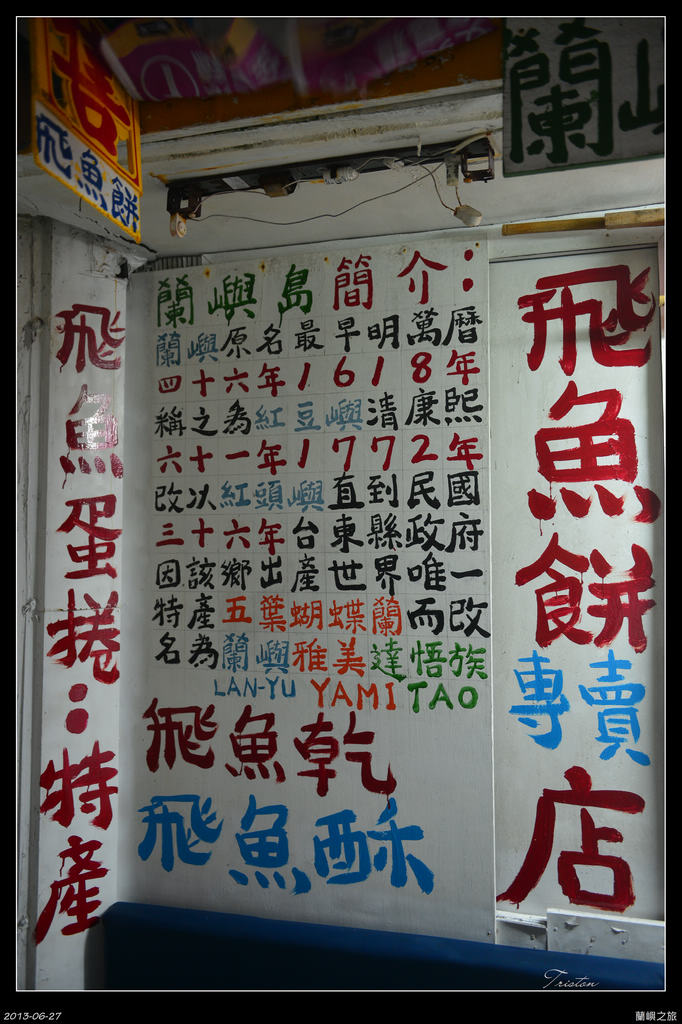 喜
飛魚餅
蘭嶼
蘭嶼島簡介：
蘭嶼原名最早明萬曆
四十六年1618年
稱之為紅豆嶼清康熙
六十一年1772年
改以紅頭嶼直到民國
三十六年台東縣政府
因該鄉出產世界唯一
特產五葉蝴蝶蘭而改
名為蘭嶼雅美達悟族
LAN-YU YAMI TAO
飛魚乾
飛魚酥
飛魚蛋捲：特產
飛魚餅
專賣
店
Triston
2013-06-27
蘭嶼之旅